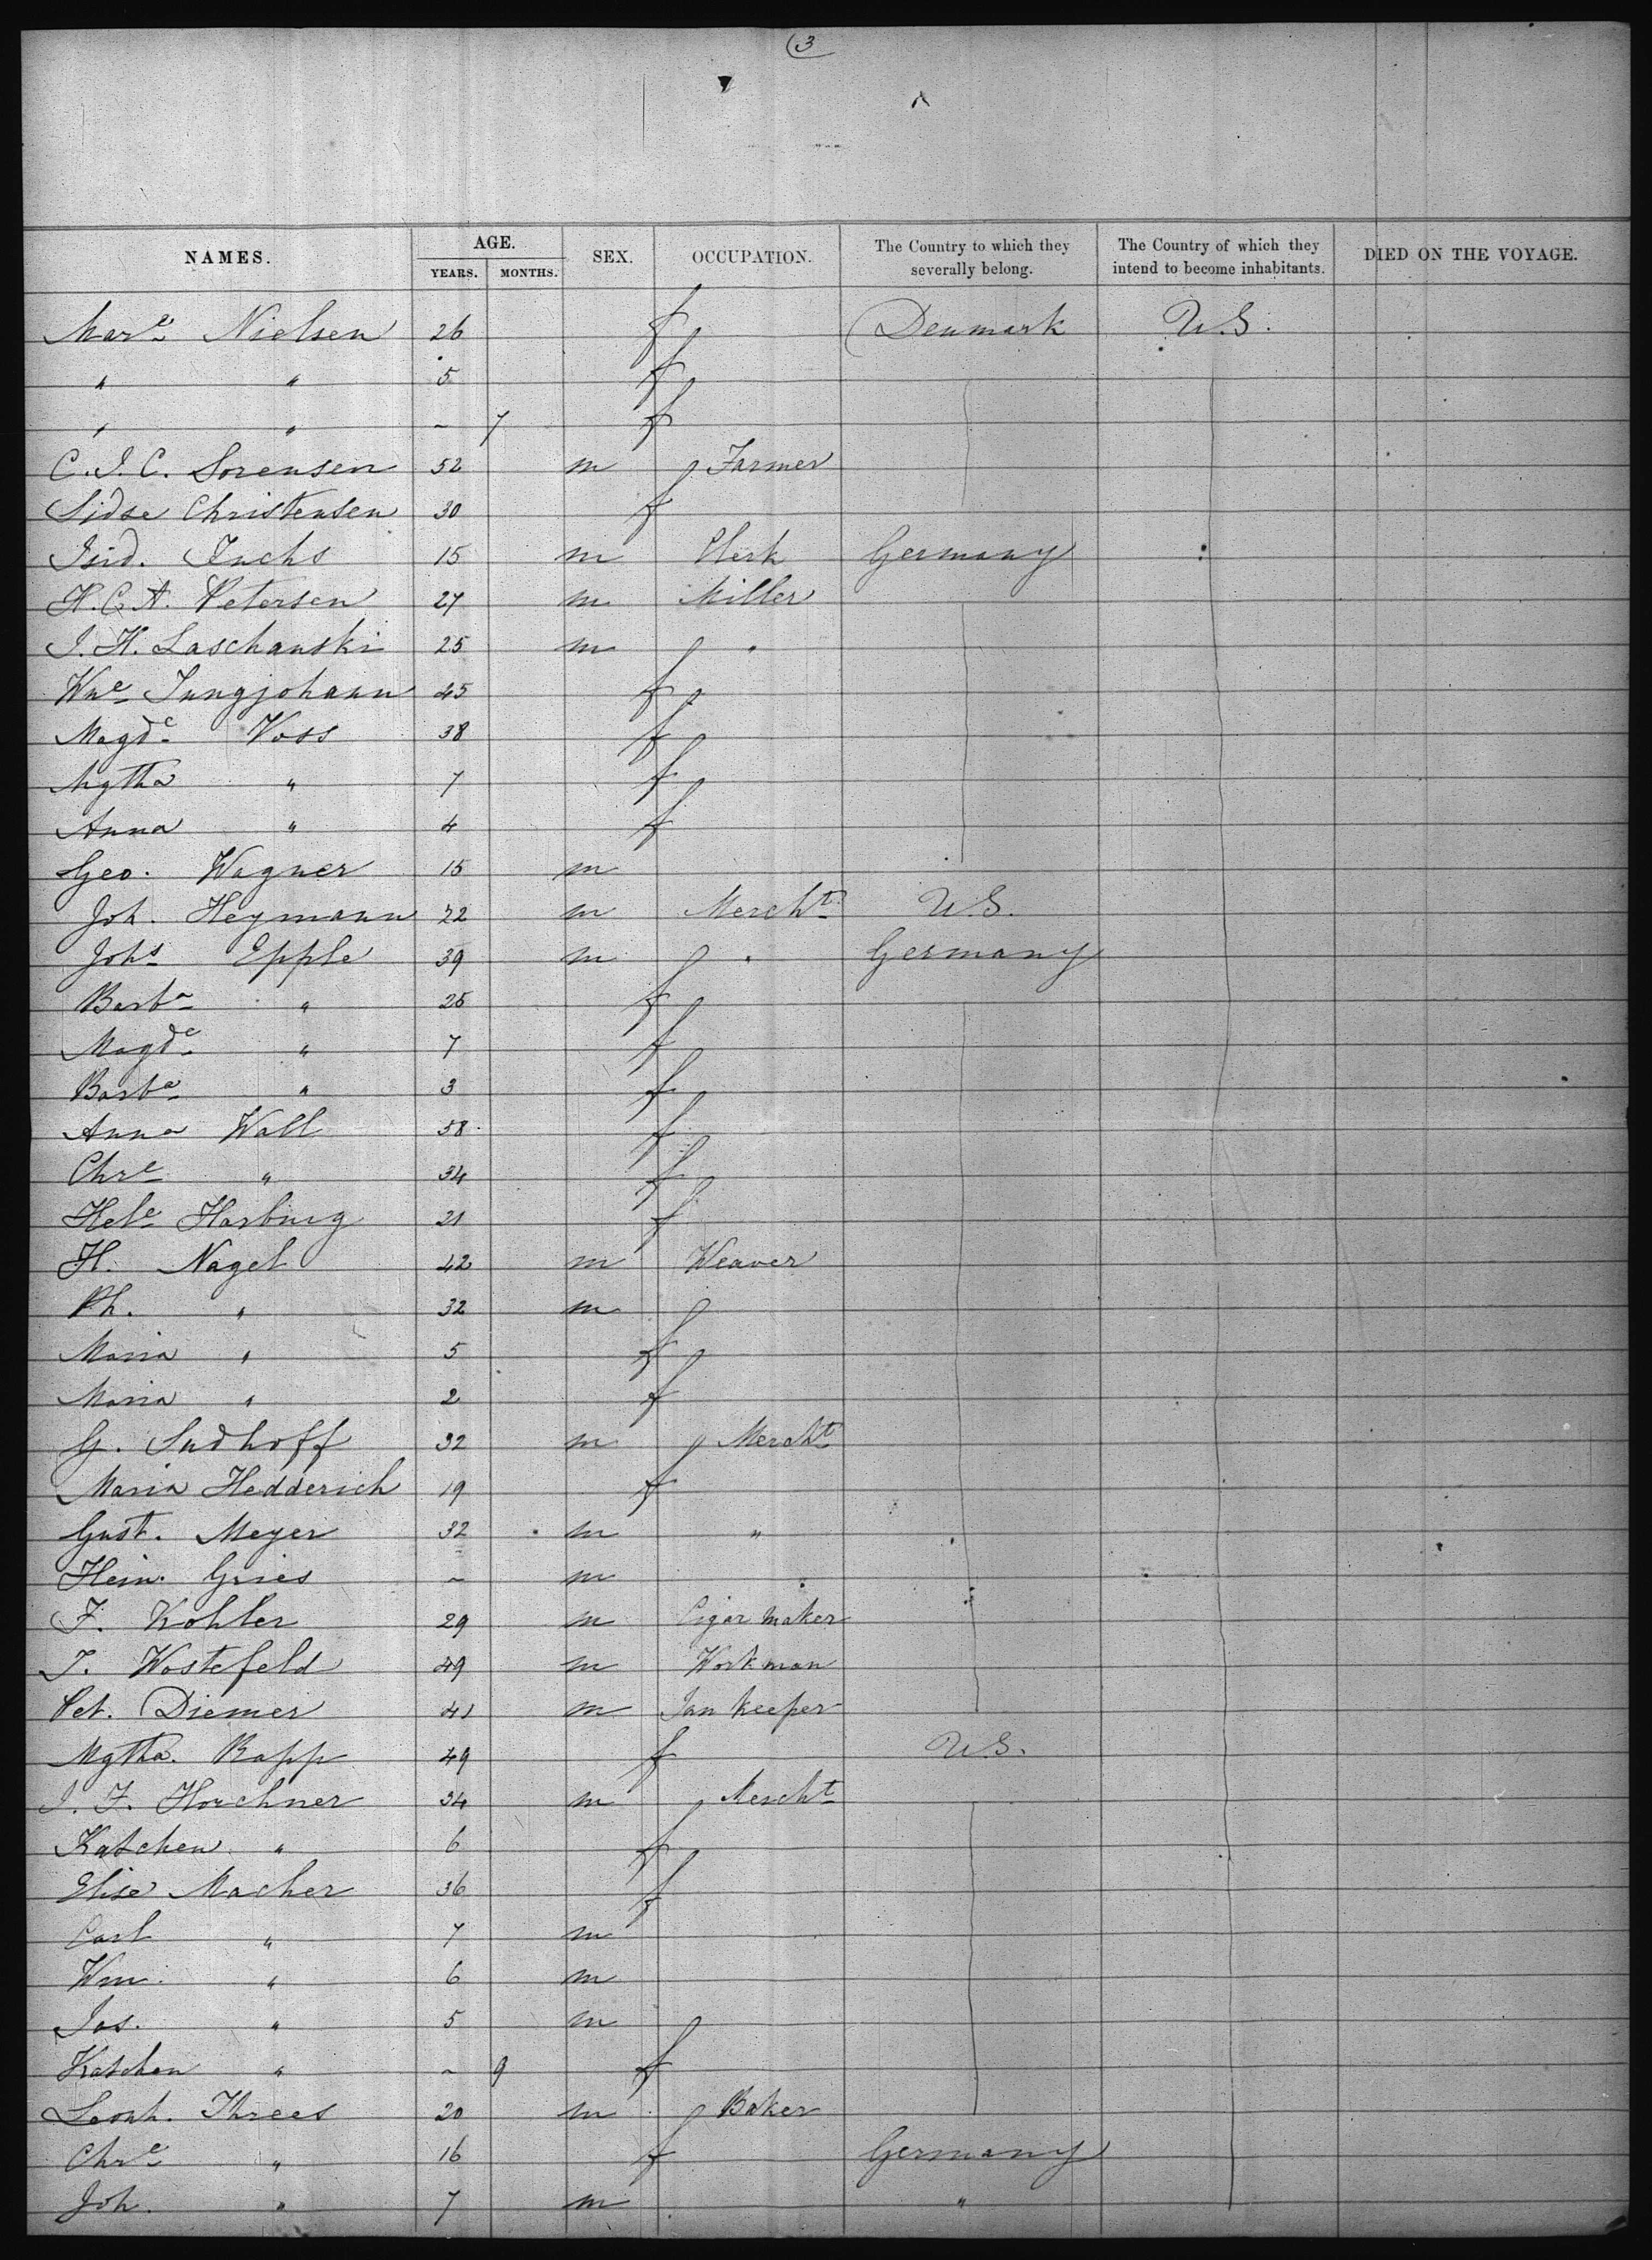 3
NAMES. AGE. SEX. OCCUPATION. The Country to which they severally belong. The Country of which they intend to become inhabitants. DIED ON THE VOYAGE.
YEARS. MONTHS.
Mare Nielsen 26 f Denmark U.S.
" " 5 f
" " ~ 7 f
C. J. C. Sorensen 52 m Farmer
Sidse Christensen 30 f
Isid. Fuchs 15 m Clerk Germany
H. C. A. Petersen 27 m Miller
J. H. Laschanski 25 m "
Wme Jungjohann 45 f
Magde Voss 38 f
Mgtha " 7 f
Anna " 4 f
Geo. Wagner 15 m
Joh. Heymann 22 m Mercht U.S.
Johs Epple 39 m " Germany
Barba " 25 f
Magde " 7 f
Barba " 3 f
Anna Wall 58 f
Chre " 34 f
Hele Harburg 21 f
H. Nagel 42 m Weaver
Ph. " 32 m
Maria " 5 f
Maria " 2 f
G. Sudhoff 32 m Mercht
Maria Hedderich 19 f
Gust. Meyer 32 m "
Hein. Gries ~ m
F. Kohler 29 m Cigar maker
J. Wostefeld 49 m Workman
Pet. Diemer 41 m Inn Keeper
Mgtha. Rapp 49 f U.S.
J. F. Horchner 34 m Mercht
Katchen " 6 f
Elise Macher 36 f
Carl " 7 m
Wm. " 6 m
Jos. " 5 m
Katchen " ~ 9 f
Leonh. Threes 20 m Baker
Chre " 16 f Germany
Joh. " 7 m "